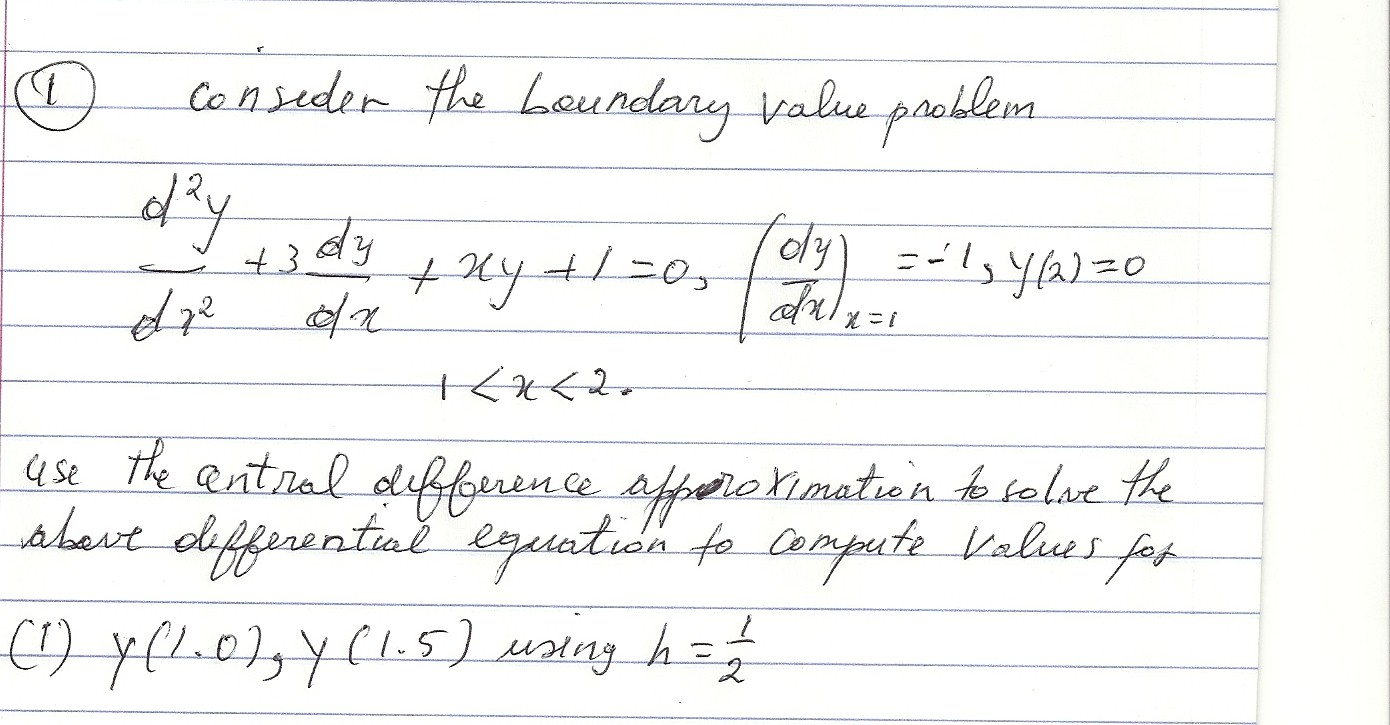 ① consider the boundary value problem
d²y/dx² + 3 dy/dx + xy + 1 = 0, (dy/dx)ₓ₌₁ = -1, y(2) = 0
1 < x < 2.
use the central difference approximation to solve the
above differential equation to compute values for
(1) y(1.0), y(1.5) using h = 1/2